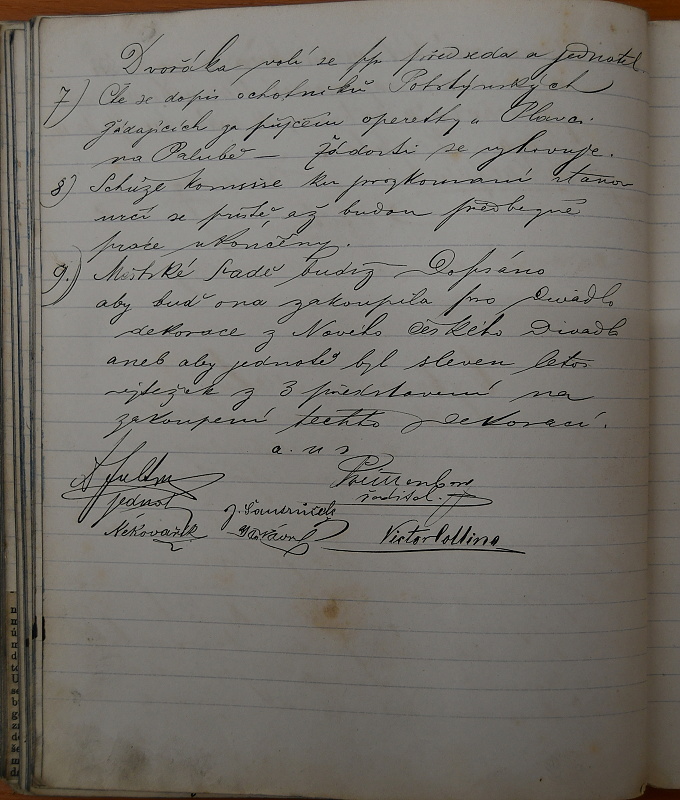 Dvořáka volí se pp předseda a jednatel
7) Čte se dopis ochotníků Potštýnských
žádajících za půjčení operetty „Plavci
na Palubě — Žádosti se vyhovuje.
8) Schůze komisse ku prozkoumání stanov
určí se příště, až budou předbězné
práce ukončěny.
9.) Městské Radě budiž Dopsáno
aby buď ona zakoupila pro Divadlo
dekorace z Nového Českého Divadla
aneb aby jednotě byl sleven letos
výtežek z 3 představení na
zakoupení těchto dekorací.
a. u s
jednat
ředitel.
Nekovařík
Victor Pollina